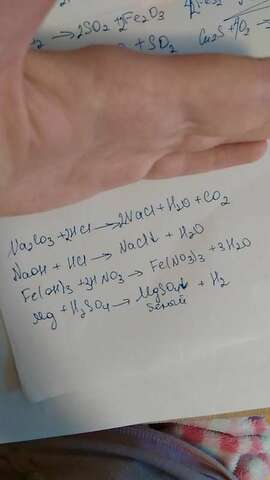 → 2SO2 + 2Fe2O3
+ SO2 Cu2S + O2 →
Na2CO3 + 2HCl → 2NaCl + H2O + CO2
NaOH + HCl → NaCl + H2O
Fe(OH)3 + 3HNO3 → Fe(NO3)3 + 3H2O
Mg + H2SO4 → MgSO4 + H2